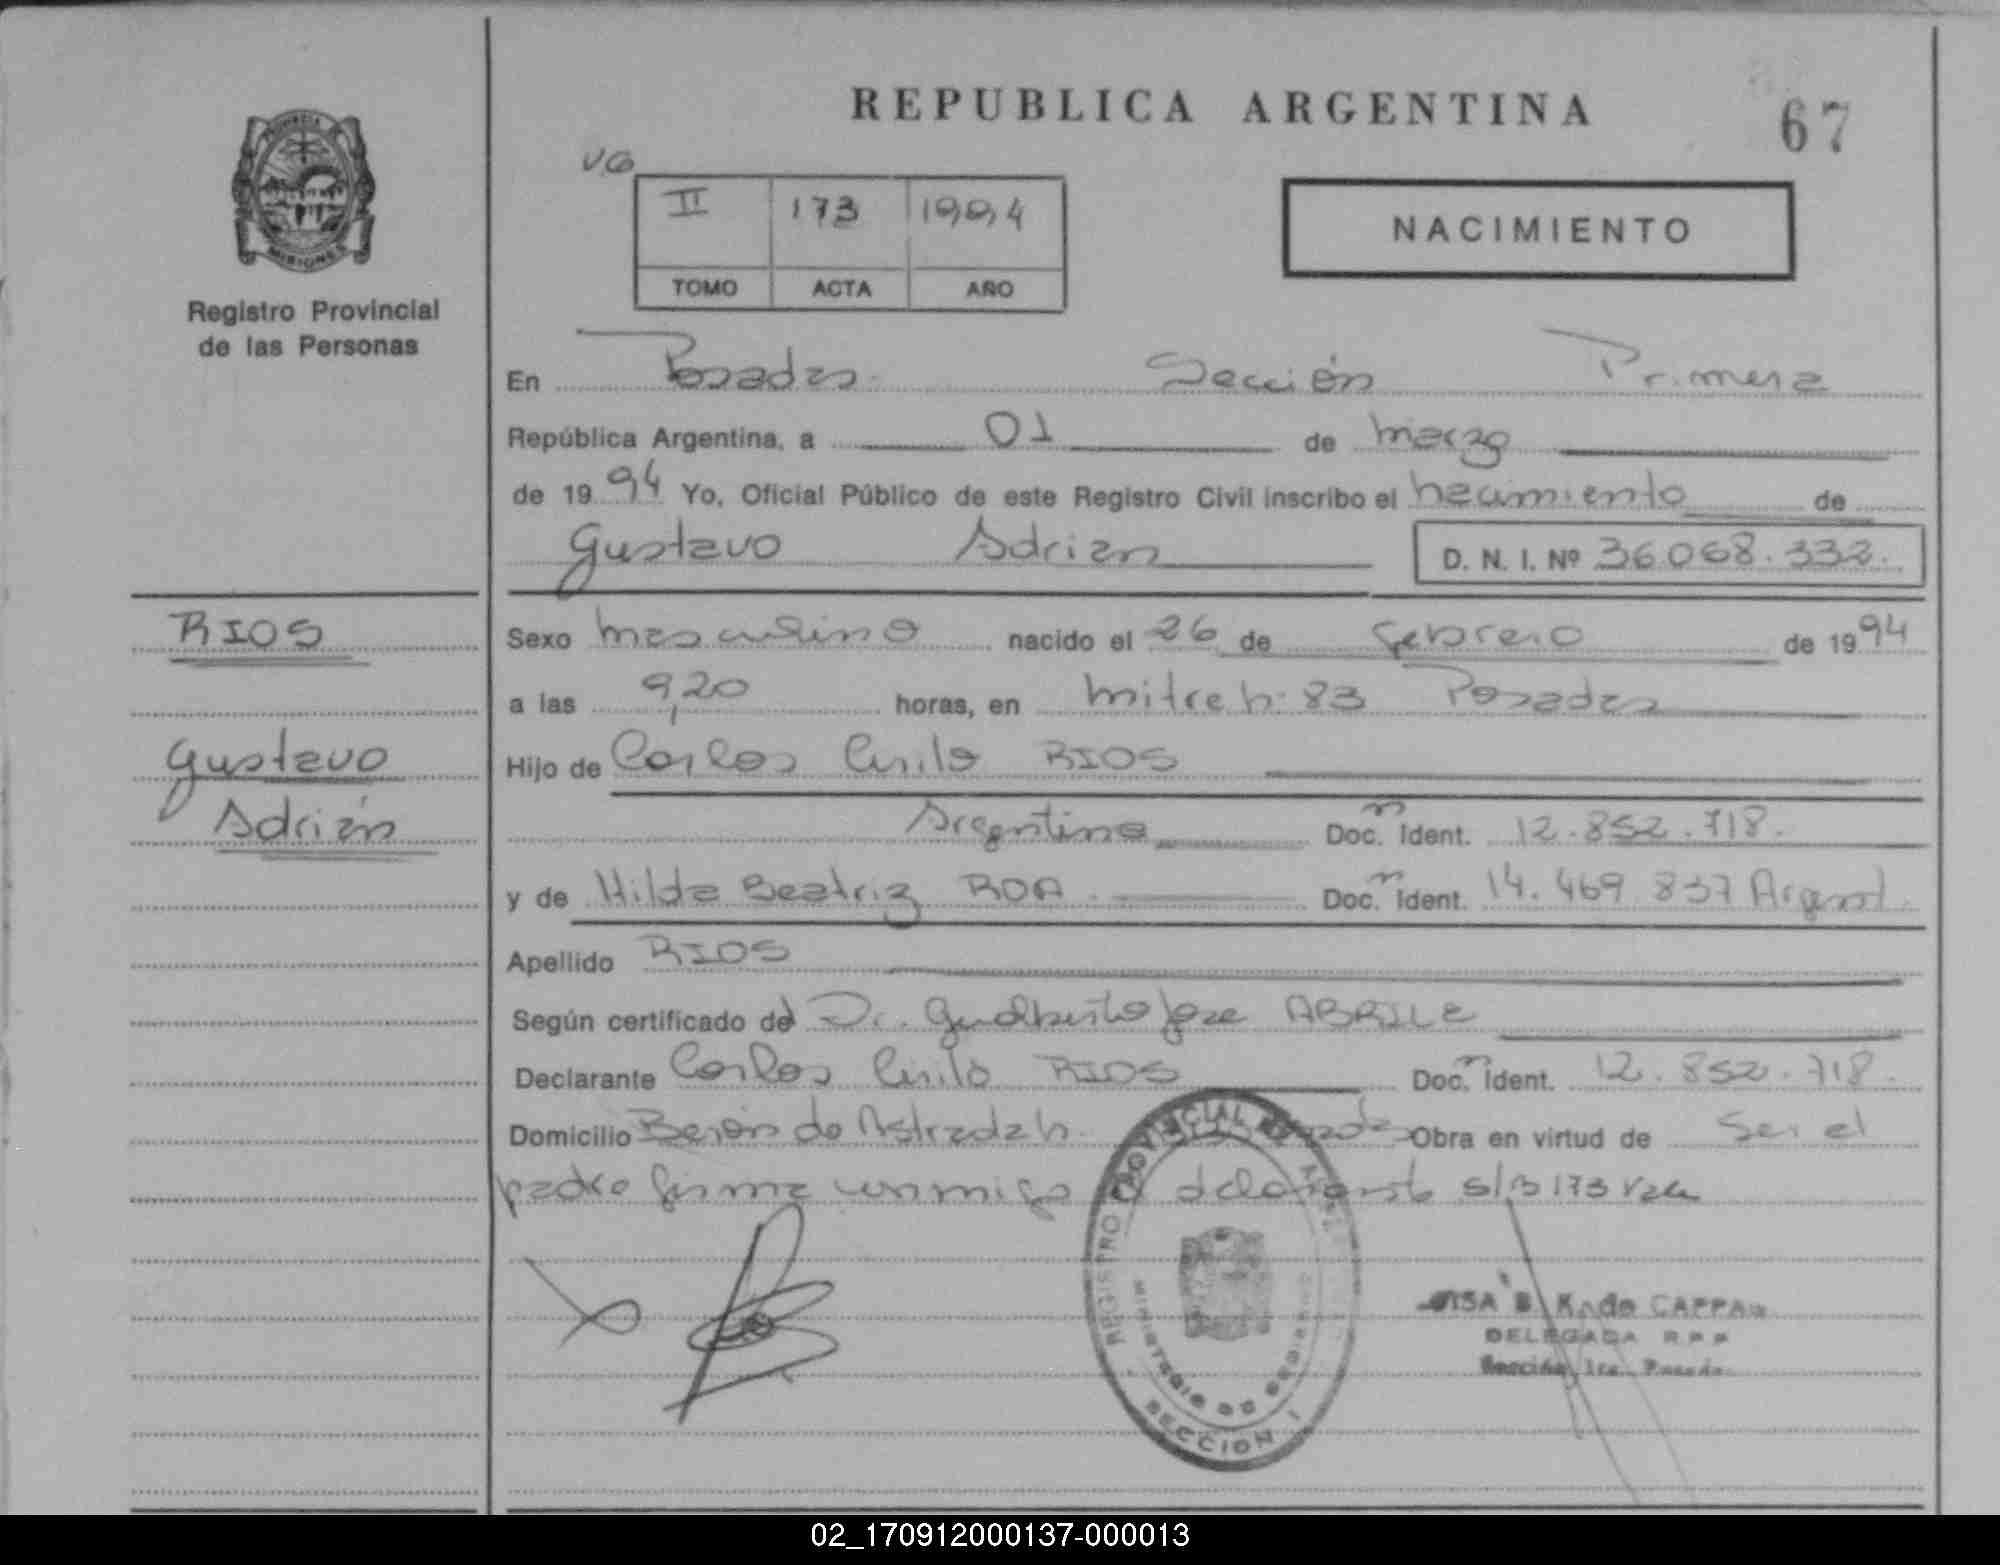 REPUBLICA ARGENTINA
67
PROVINCIA DE
MISIONES
Registro Provincial
de las Personas
II 173 1994
TOMO ACTA AÑO
NACIMIENTO
En Posadas Sección Primera
República Argentina, a 01 de marzo
de 1994 Yo, Oficial Público de este Registro Civil inscribo el nacimiento de
Gustavo Adrian D. N. I. Nº 36.068.332.
RIOS
Gustavo
Adrián
Sexo masculino nacido el 26 de febrero de 1994
a las 9,20 horas, en mitre n: 83 Posadas
Hijo de Carlos Cirilo RIOS
Argentino Doc. Ident. 12.852.718.
y de Hilda Beatriz ROA Doc. Ident. 14.469.837 Argent.
Apellido RIOS
Según certificado del Dr. Gualberto Jose ABRILE
Declarante Carlos Cirilo RIOS Doc. Ident. 12.852.718.
Domicilio Berón de Astrada n. Obra en virtud de Ser el
padre firma conmigo el declarante s/b 173 vale
REGISTRO PROVINCIAL DE
MINISTERIO DE GOBIERNO
SECCION I
DELEGADA R P P
Sección 1ra. Posadas
02_170912000137-000013